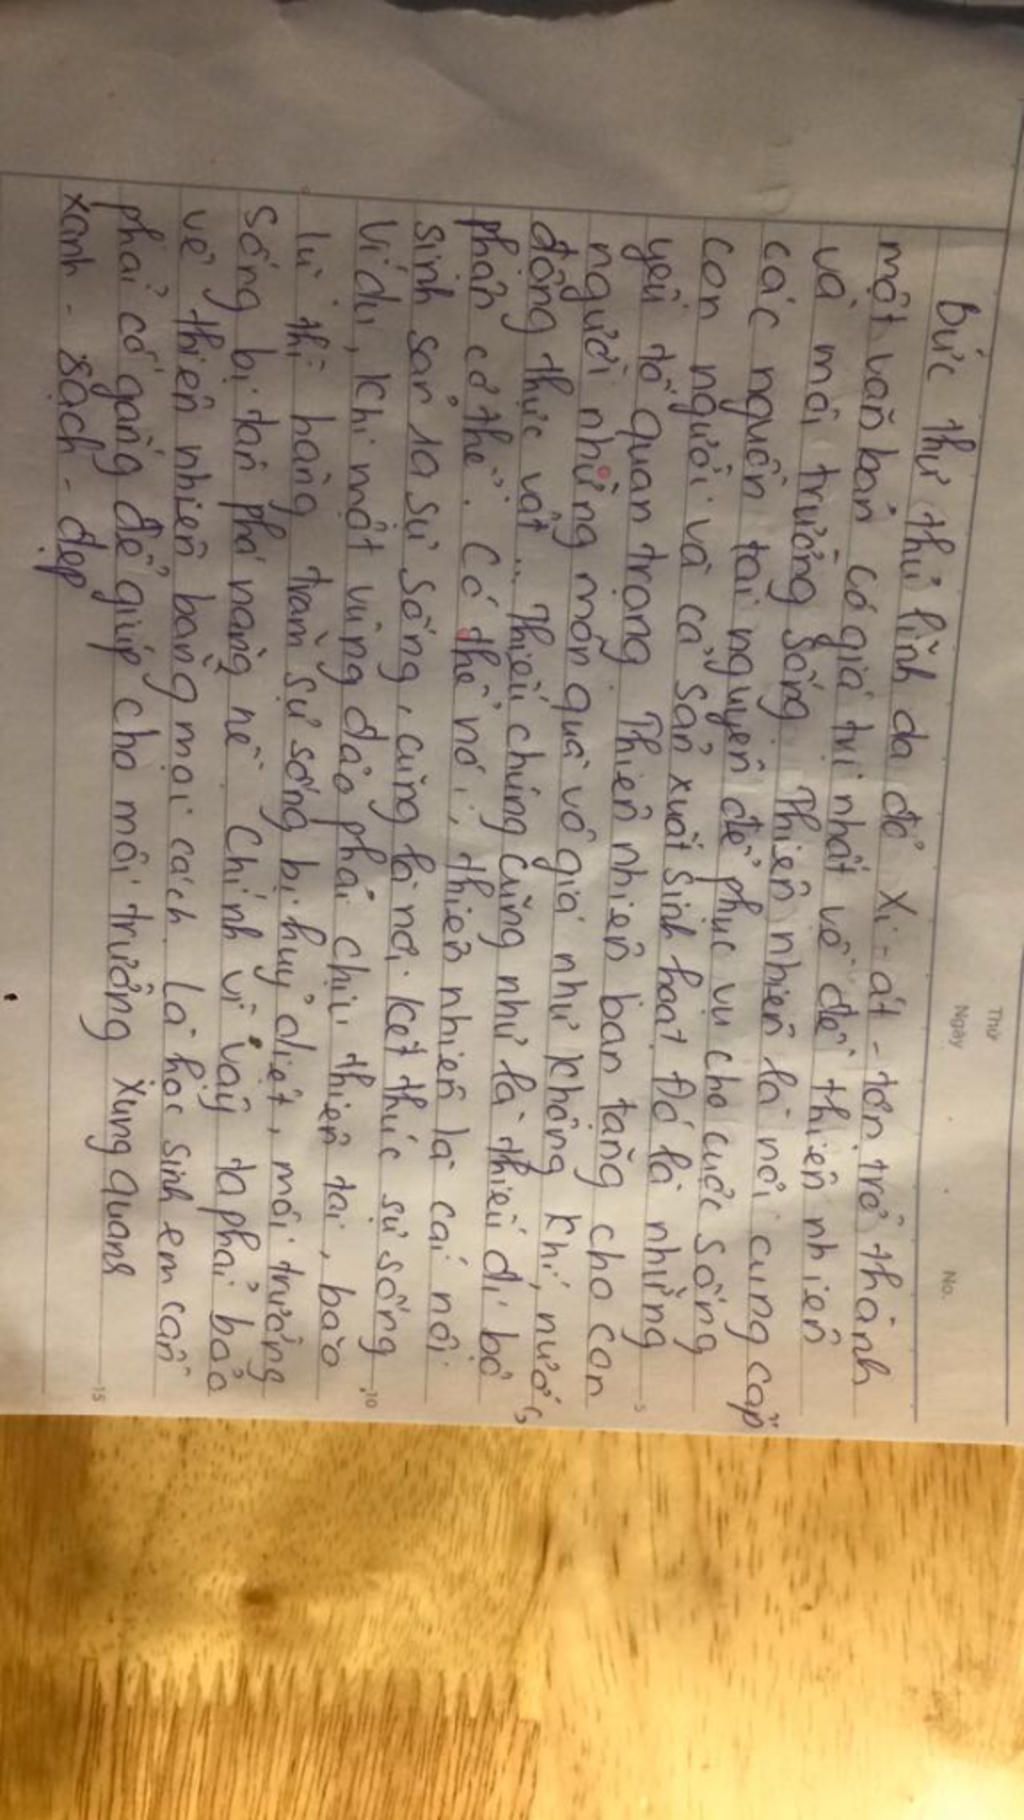 Thứ
Ngày
No.
Bức thư thủ lĩnh da đỏ Xi-át-tơn trở thành
một văn bản có giá trị nhất về đề thiên nhiên
và môi trường sống. Thiên nhiên là nơi cung cấp
các nguồn tài nguyên để phục vụ cho cuộc sống
con người và cả sản xuất sinh hoạt. Đó là những
yếu tố quan trọng. Thiên nhiên ban tặng cho con
người những món quà vô giá như không khí, nước,
động thực vật... Thiếu chúng cũng như là thiếu đi bộ
phận cơ thể. Có thể nói, thiên nhiên là cái nôi
sinh sản ra sự sống, cũng là nơi kết thúc sự sống
Ví dụ, khi một vùng đảo phải chịu thiên tai, bão
lũ thì hàng trăm sự sống bị huỷ diệt, môi trường
sống bị tàn phá nặng nề. Chính vì vậy ta phải bảo
vệ thiên nhiên bằng mọi cách. Là học sinh em cần
phải cố gắng để giúp cho môi trường xung quanh
xanh - sạch - đẹp
5
10
15